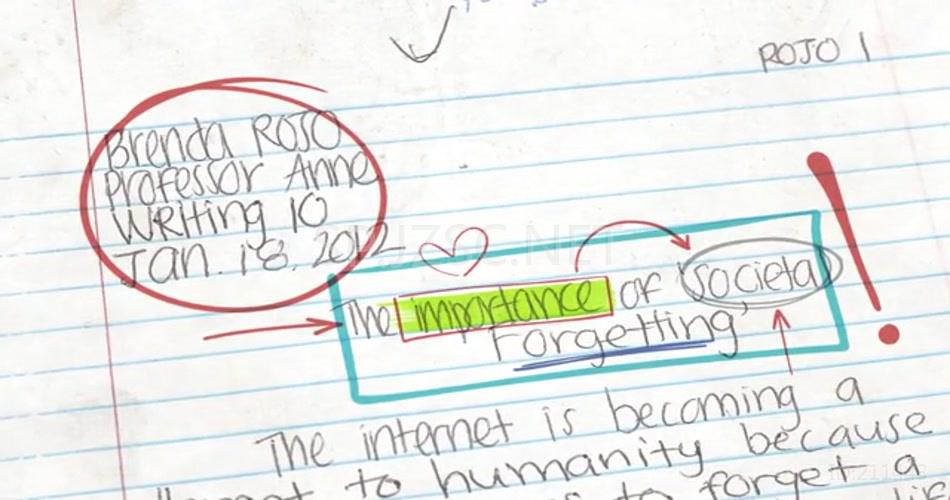 ROJO 1
Brenda ROJO
Professor Anne
Writing 10
Jan. 18, 2012
The importance of 'Societal
Forgetting'
The internet is becoming a
to humanity because
to forget a